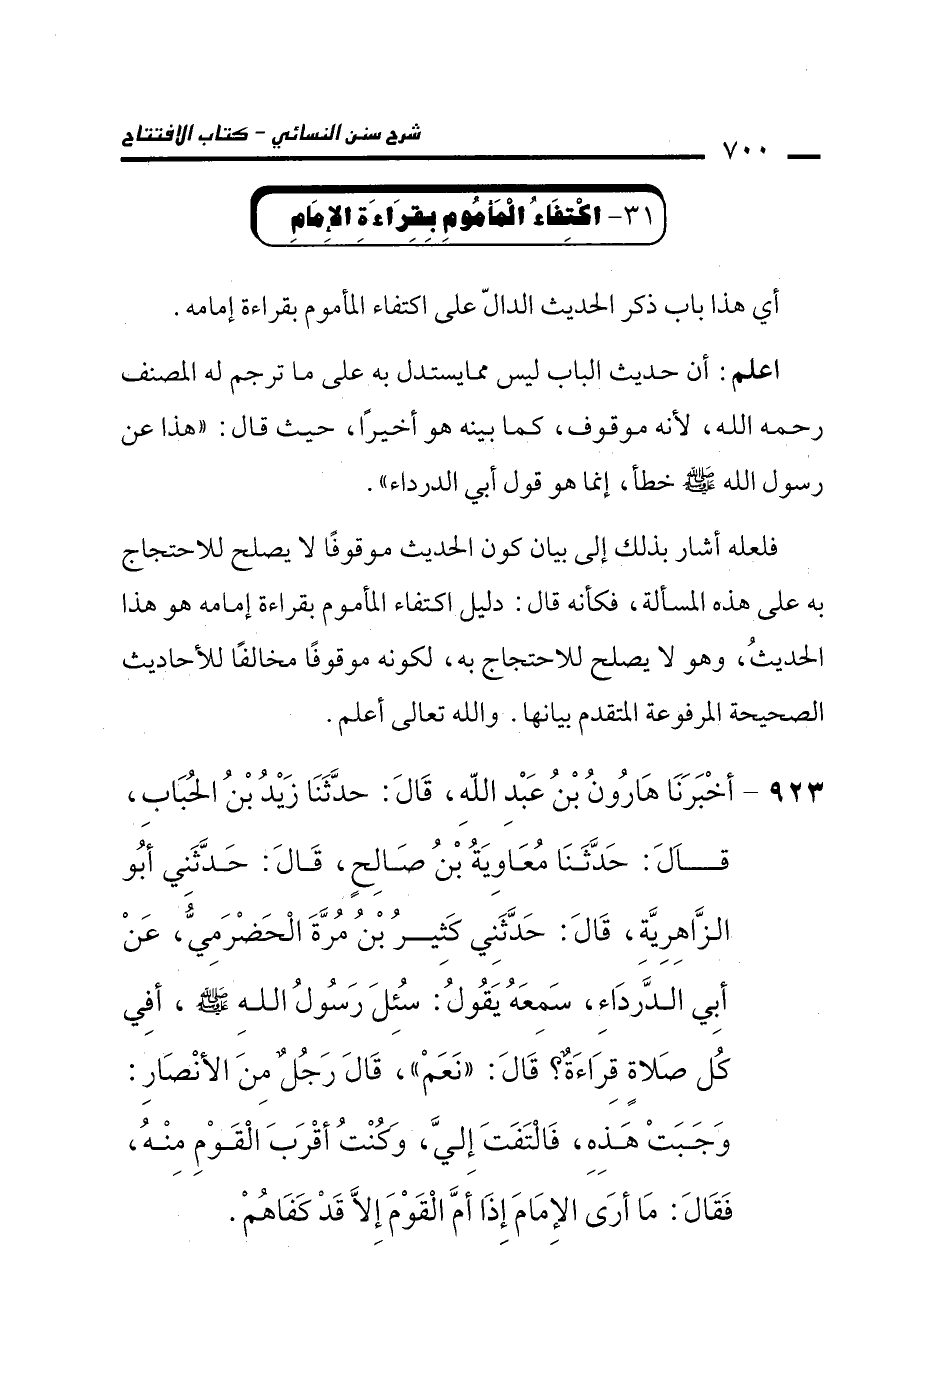 شرح سنن النسائي - كتاب الافتتاح
٧٠٠
٣١- اكْتِفَاءُ الْمَأْمُومِ بِقِرَاءَةِ الإِمَامِ
أي هذا باب ذكر الحديث الدالّ على اكتفاء المأموم بقراءة إمامه .
اعلم : أن حديث الباب ليس ممايستدل به على ما ترجم له المصنف
رحمه الله، لأنه موقوف، كما بينه هو أخيرًا، حيث قال : «هذا عن
رسول الله ﷺ خطأ، إنما هو قول أبي الدرداء» .
فلعله أشار بذلك إلى بيان كون الحديث موقوفًا لا يصلح للاحتجاج
به على هذه المسألة، فكأنه قال : دليل اكتفاء المأموم بقراءة إمامه هو هذا
الحديثُ، وهو لا يصلح للاحتجاج به، لكونه موقوفًا مخالفًا للأحاديث
الصحيحة المرفوعة المتقدم بيانها . والله تعالى أعلم .
٩٢٣ - أخْبَرَنَا هَارُونُ بْنُ عَبْدِ اللَّهِ، قَالَ : حدَّثَنَا زَيْدُ بْنُ الحُبَابِ،
قَـــالَ : حَدَّثَـنَا مُعَاوِيَةُ بْنُ صَـالِحٍ، قَـالَ : حَـدَّثَنِي أبُو
الزَّاهِرِيَّةِ، قَالَ : حَدَّثَنِي كَثِيـــرُ بْنُ مُرَّةَ الْحَضْرَمِيُّ، عَنْ
أبِي الـدَّرْدَاءِ، سَمِعَهُ يَقُولُ : سُئِلَ رَسُولُ اللـهِ ﷺ ، أفِي
كُلِّ صَلاةٍ قِرَاءَةٌ؟ قَالَ : «نَعَمْ»، قَالَ رَجُلٌ مِنَ الأنْصَارِ :
وَجَبَتْ هَـذِهِ، فَالْتَفَتَ إلَيَّ، وَكُنْتُ أقْرَبَ الْقَـوْمِ مِنْـهُ،
فَقَالَ : مَا أرَى الإمَامَ إذَا أمَّ الْقَوْمَ إلاَّ قَدْ كَفَاهُمْ .